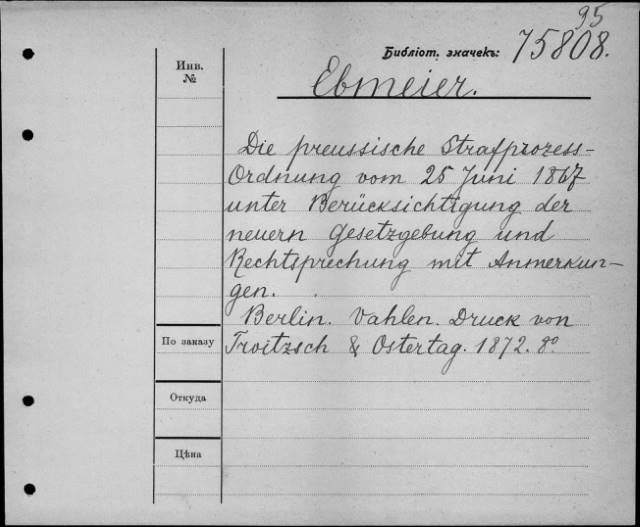 95
Библіот. значекъ: 75808.
Инв. №
Ebmeier.
Die preussische Strafprozess-
Ordnung vom 25 Juni 1867
unter Berücksichtigung der
neuern Gesetzgebung und
Rechtsprechung mit Anmerkun-
gen.
Berlin. Vahlen. Druck von
По заказу
Troitzsch & Ostertag. 1872. 8º
Откуда
Цѣна